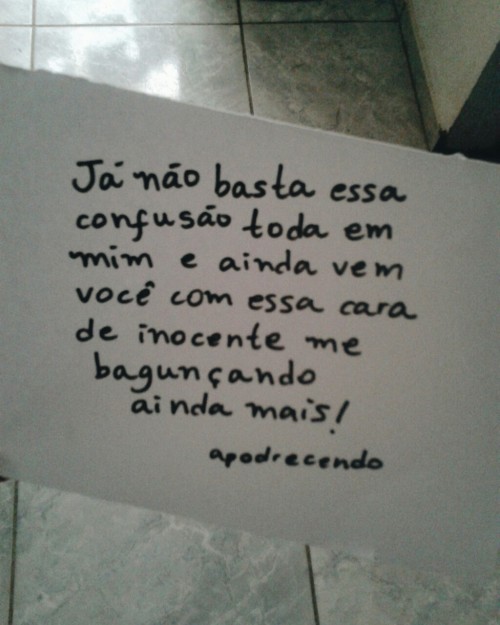 Já não basta essa
confusão toda em
mim e ainda vem
você com essa cara
de inocente me
bagunçando
ainda mais!
apodrecendo